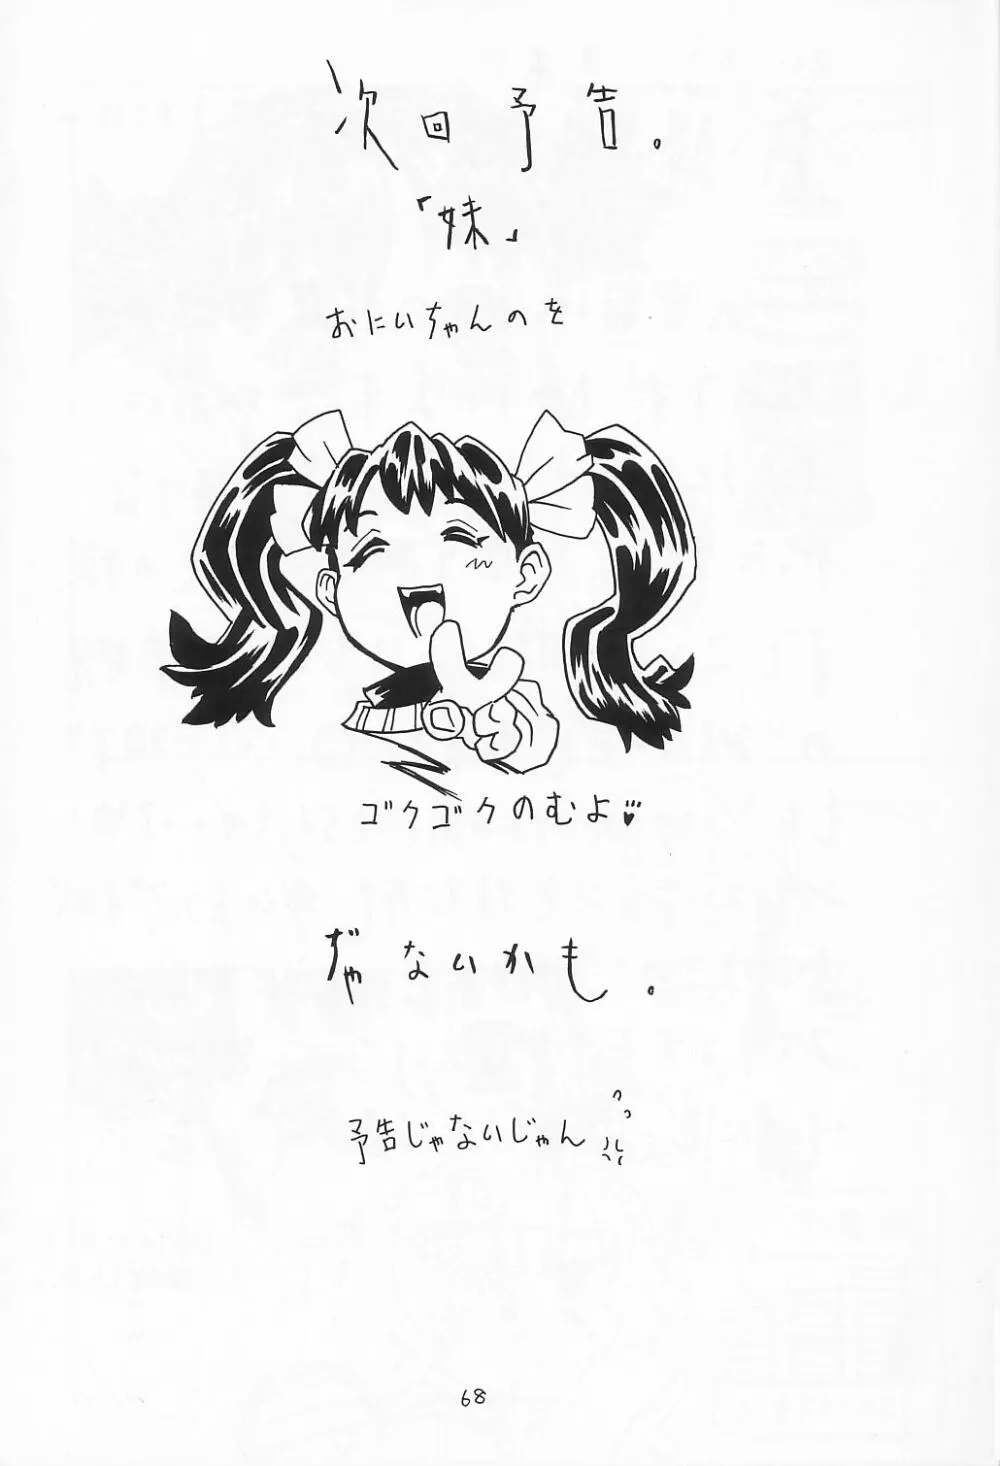 次回予告。
「妹」
おにいちゃんのを
ゴクゴクのむよ♥
ぢゃないかも。
予告じゃないじゃん
68